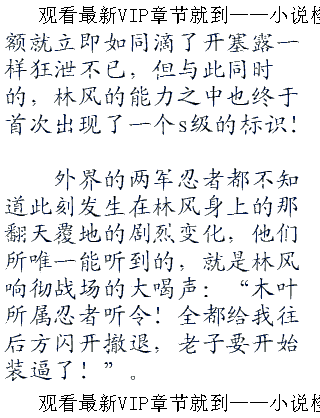 观看最新VIP章节就到——小说
额就立即如同滴了开塞露一
样狂泄不已，但与此同时
的，林风的能力之中也终于
首次出现了一个s级的标识！
外界的两军忍者都不知
道此刻发生在林风身上的那
翻天覆地的剧烈变化，他们
所唯一能听到的，就是林风
响彻战场的大喝声：“木叶
所属忍者听令！全都给我往
后方闪开撤退，老子要开始
装逼了！”。
观看最新VIP章节就到——小说